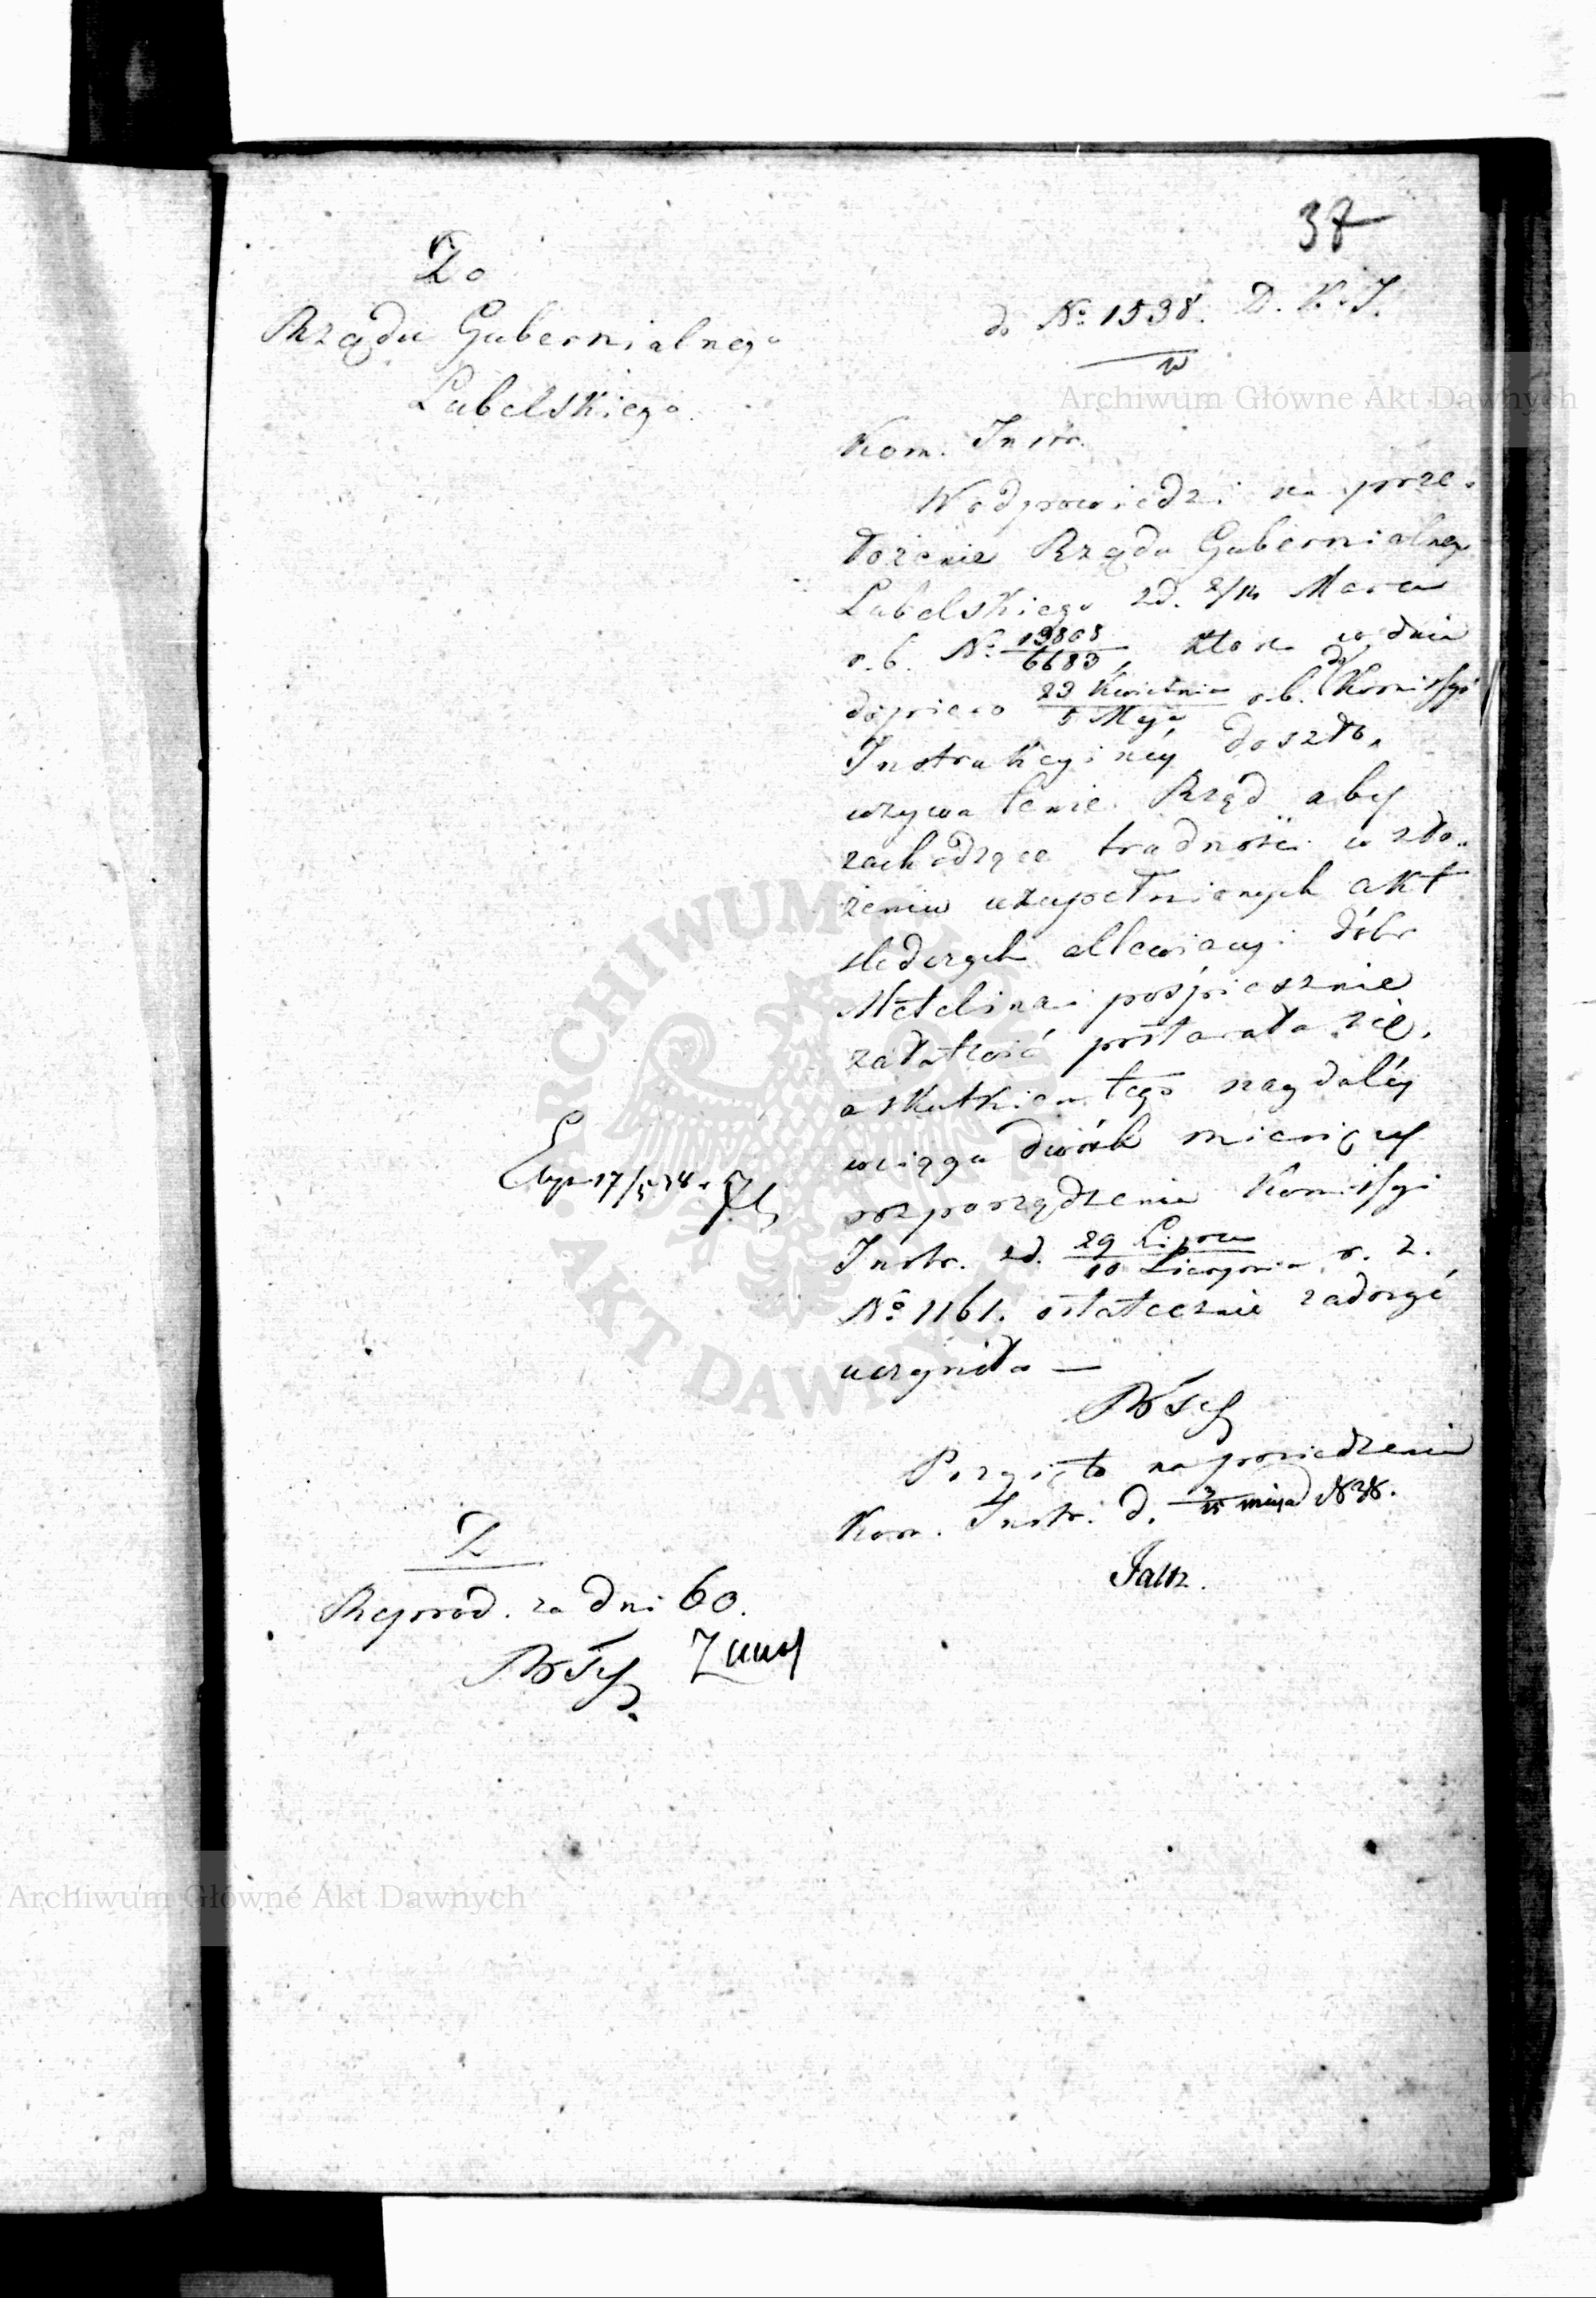 37
Do
Rządu Gubernialnego
Lubelskiego
do No 1538. D. K. I.
Kom. Instr.
W odpowiedzi na prze-
łożenie Rządu Gubernialnego
Lubelskiego zd. 2/14 Marca
r. b. No 19808/6683, które w dniu
dopiero 23 Kwietnia/5 Maja r. b. do Kommissyi
Instrukcyjnéj doszło,
wzywa tenże Rząd aby
zachodzące trudności w zło-
żeniu uzupełnionych akt
śledczych allewiacyi dóbr
Metelina pośpiesznie
załatwić postarał się,
a skutkiem tego naydaléy
wciągu dwóch miesięcy
rozporządzeniu Kommissyi
Instr. zd. 29 Lipca/10 Sierpnia r. z.
No 1161. ostatecznie zadosyć
uczynił —
Przyięto na posiedzeniu
Kom. Instr. d. 3/15 maja 1838.
Exp. 17/5 38
Reprod. za dni 60.
Archiwum Główne Akt Dawnych
ARCHIWUM GŁÓWNE AKT DAWNYCH
Archiwum Główne Akt Dawnych